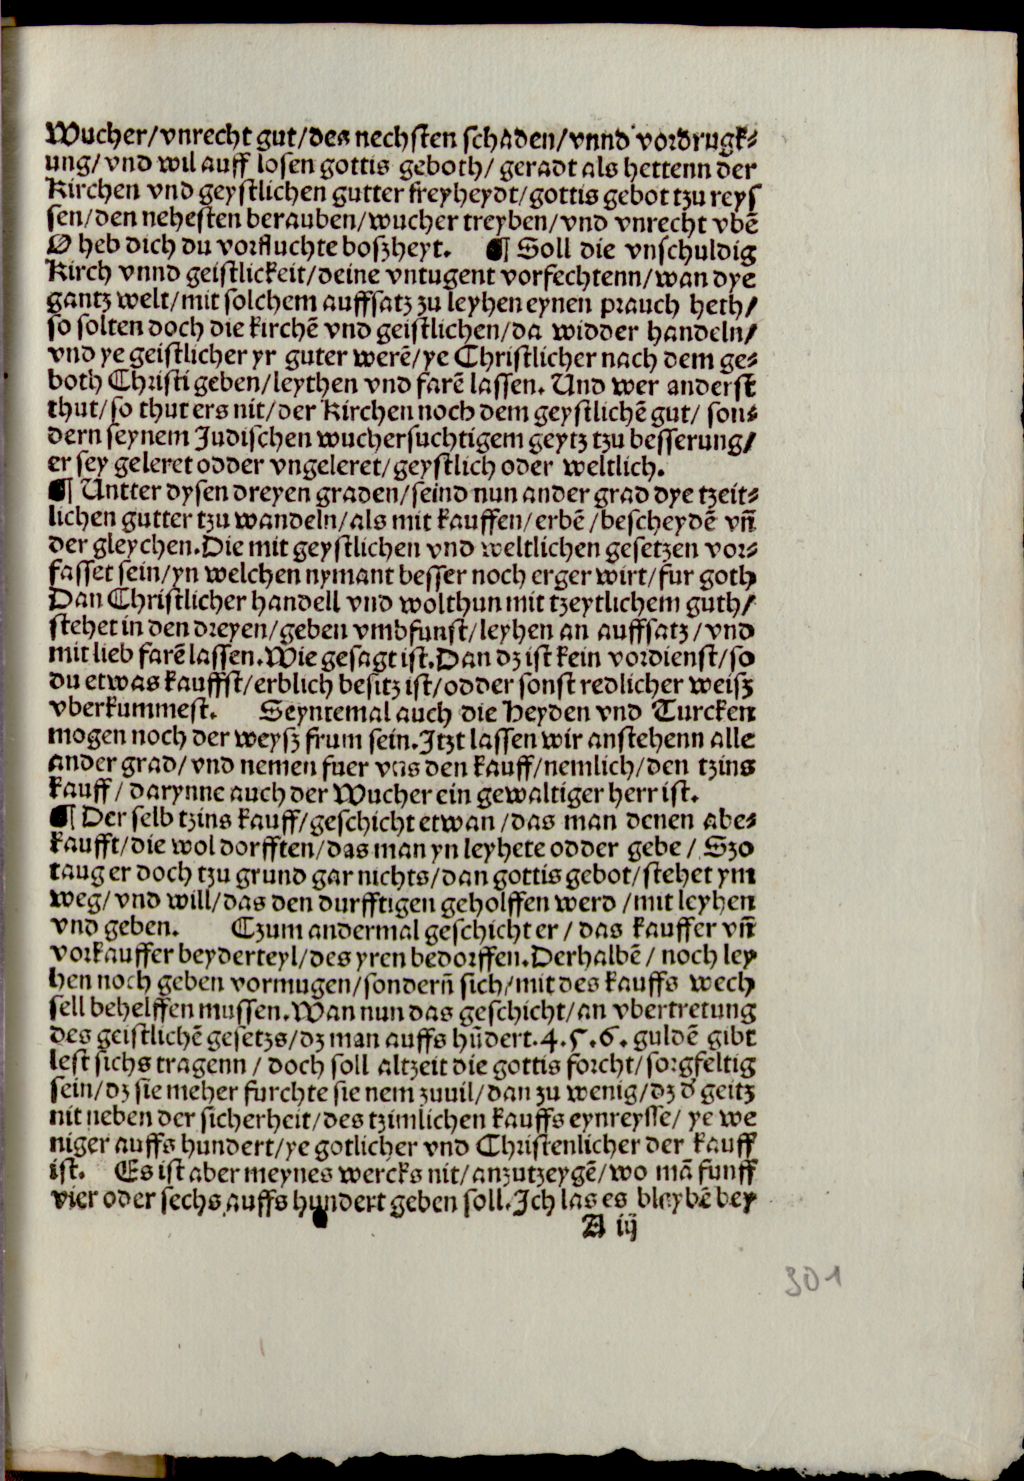 Wucher/vnrecht gut/des nechsten schaden/vnnd vordrugk⸗
ung/vnd wil auff losen gottis geboth/geradt als hettenn der
Kirchen vnd geystlichen gutter freyheydt/gottis gebot tzu reys
sen/den nehesten berauben/wucher treyben/vnd vnrecht vbē
O heb dich du vorfluchte boszheyt. ¶ Soll die vnschuldig
Kirch vnnd geistlickeit/deine vntugent vorfechtenn/wan dye
gantz welt/mit solchem auffsatz zu leyhen eynen prauch heth/
so solten doch die kirchē vnd geistlichen/da widder handeln/
vnd ye geistlicher yr guter werē/ye Christlicher nach dem ge⸗
both Christi geben/leythen vnd farē lassen. Und wer anderst
thut/so thut ers nit/der Kirchen noch dem geystlichē gut/son⸗
dern seynem Judischen wuchersuchtigem geytz tzu besserung/
er sey geleret odder vngeleret/geystlich oder weltlich.
¶ Untter dysen dreyen graden/seind nun ander grad dye tzeit⸗
lichen gutter tzu wandeln/als mit kauffen/erbē/bescheydē vñ
der gleychen. Die mit geystlichen vnd weltlichen gesetzen vor⸗
fasset sein/yn welchen nymant besser noch erger wirt/fur goth
Dan Christlicher handell vnd wolthun mit tzeytlichem guth/
stehet in den dreyen/geben vmbsunst/leyhen an auffsatz/vnd
mit lieb farē lassen. Wie gesagt ist. Dan dz ist kein vordienst/so
du etwas kauffst/erblich besitz ist/odder sonst redlicher weisz
vberkummest. Seyntemal auch die Heyden vnd Turcken
mogen noch der weysz frum sein. Itzt lassen wir anstehenn alle
ander grad/vnd nemen fuer vns den kauff/nemlich/den tzins
kauff/darynne auch der Wucher ein gewaltiger herr ist.
¶ Der selb tzins kauff/geschicht etwan/das man denen abe⸗
kaufft/die wol dorfften/das man yn leyhete odder gebe/Szo
taug er doch tzu grund gar nichts/dan gottis gebot/stehet ym
weg/vnd will/das den durfftigen geholffen werd/mit leyhen
vnd geben. Czum andermal geschicht er/das kauffer vñ
vorkauffer beyderteyl/des yren bedorffen. Derhalbē/noch ley
hen noch geben vormugen/sonderñ sich/mit des kauffs wech
sell behelffen mussen. Wan nun das geschicht/an vbertretung
des geistlichē gesetzs/dz man auffs hūdert. 4. 5. 6. guldē gibt
lest sichs tragenn/doch soll altzeit die gottis forcht/sorgfeltig
sein/dz sie meher furchte sie nem zuuil/dan zu wenig/dz d̄ geitz
nit neben der sicherheit/des tzimlichen kauffs eynreysse/ye we
niger auffs hundert/ye gotlicher vnd Christenlicher der kauff
ist. Es ist aber meynes wercks nit/anzutzeygē/wo mā funff
vier oder sechs auffs hundert geben soll. Ich las es bleybē bey
A iij
301